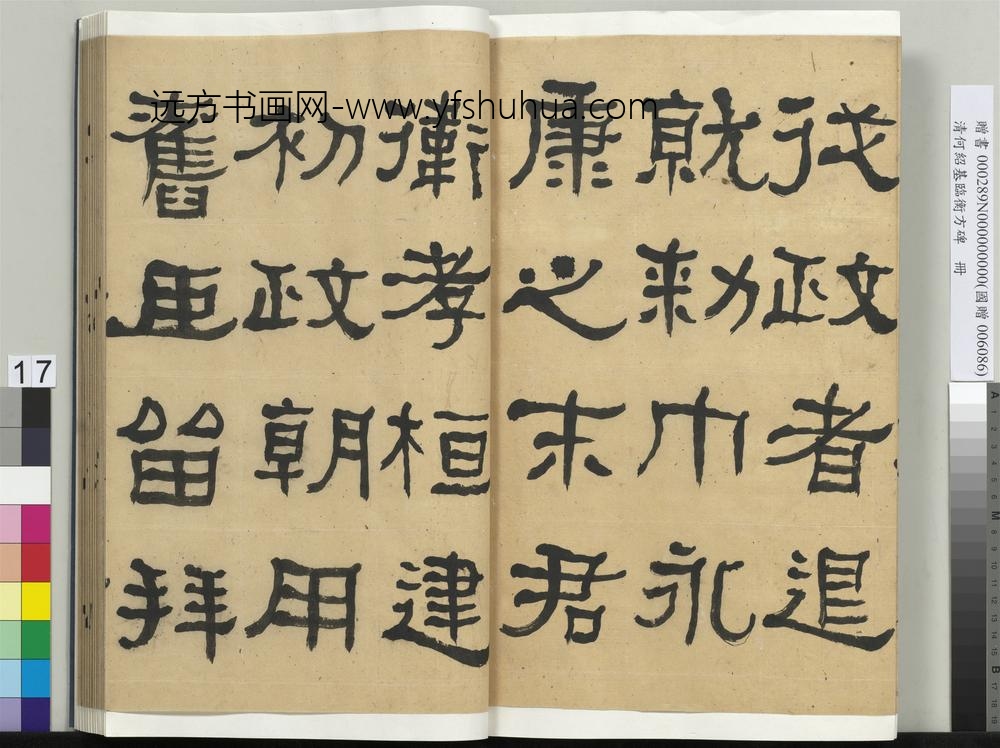 從政者退
就勑巾永
康之末君
衛孝桓建
初政朝用
舊臣留拜
远方书画网-www.yfshuhua.com
贈書 000289N000000000(國贈 006086)
清何紹基臨衡方碑 冊
17
A 1 2 3 4 5 6 M 8 9 10 11 12 13 14 15 B 17 18 19